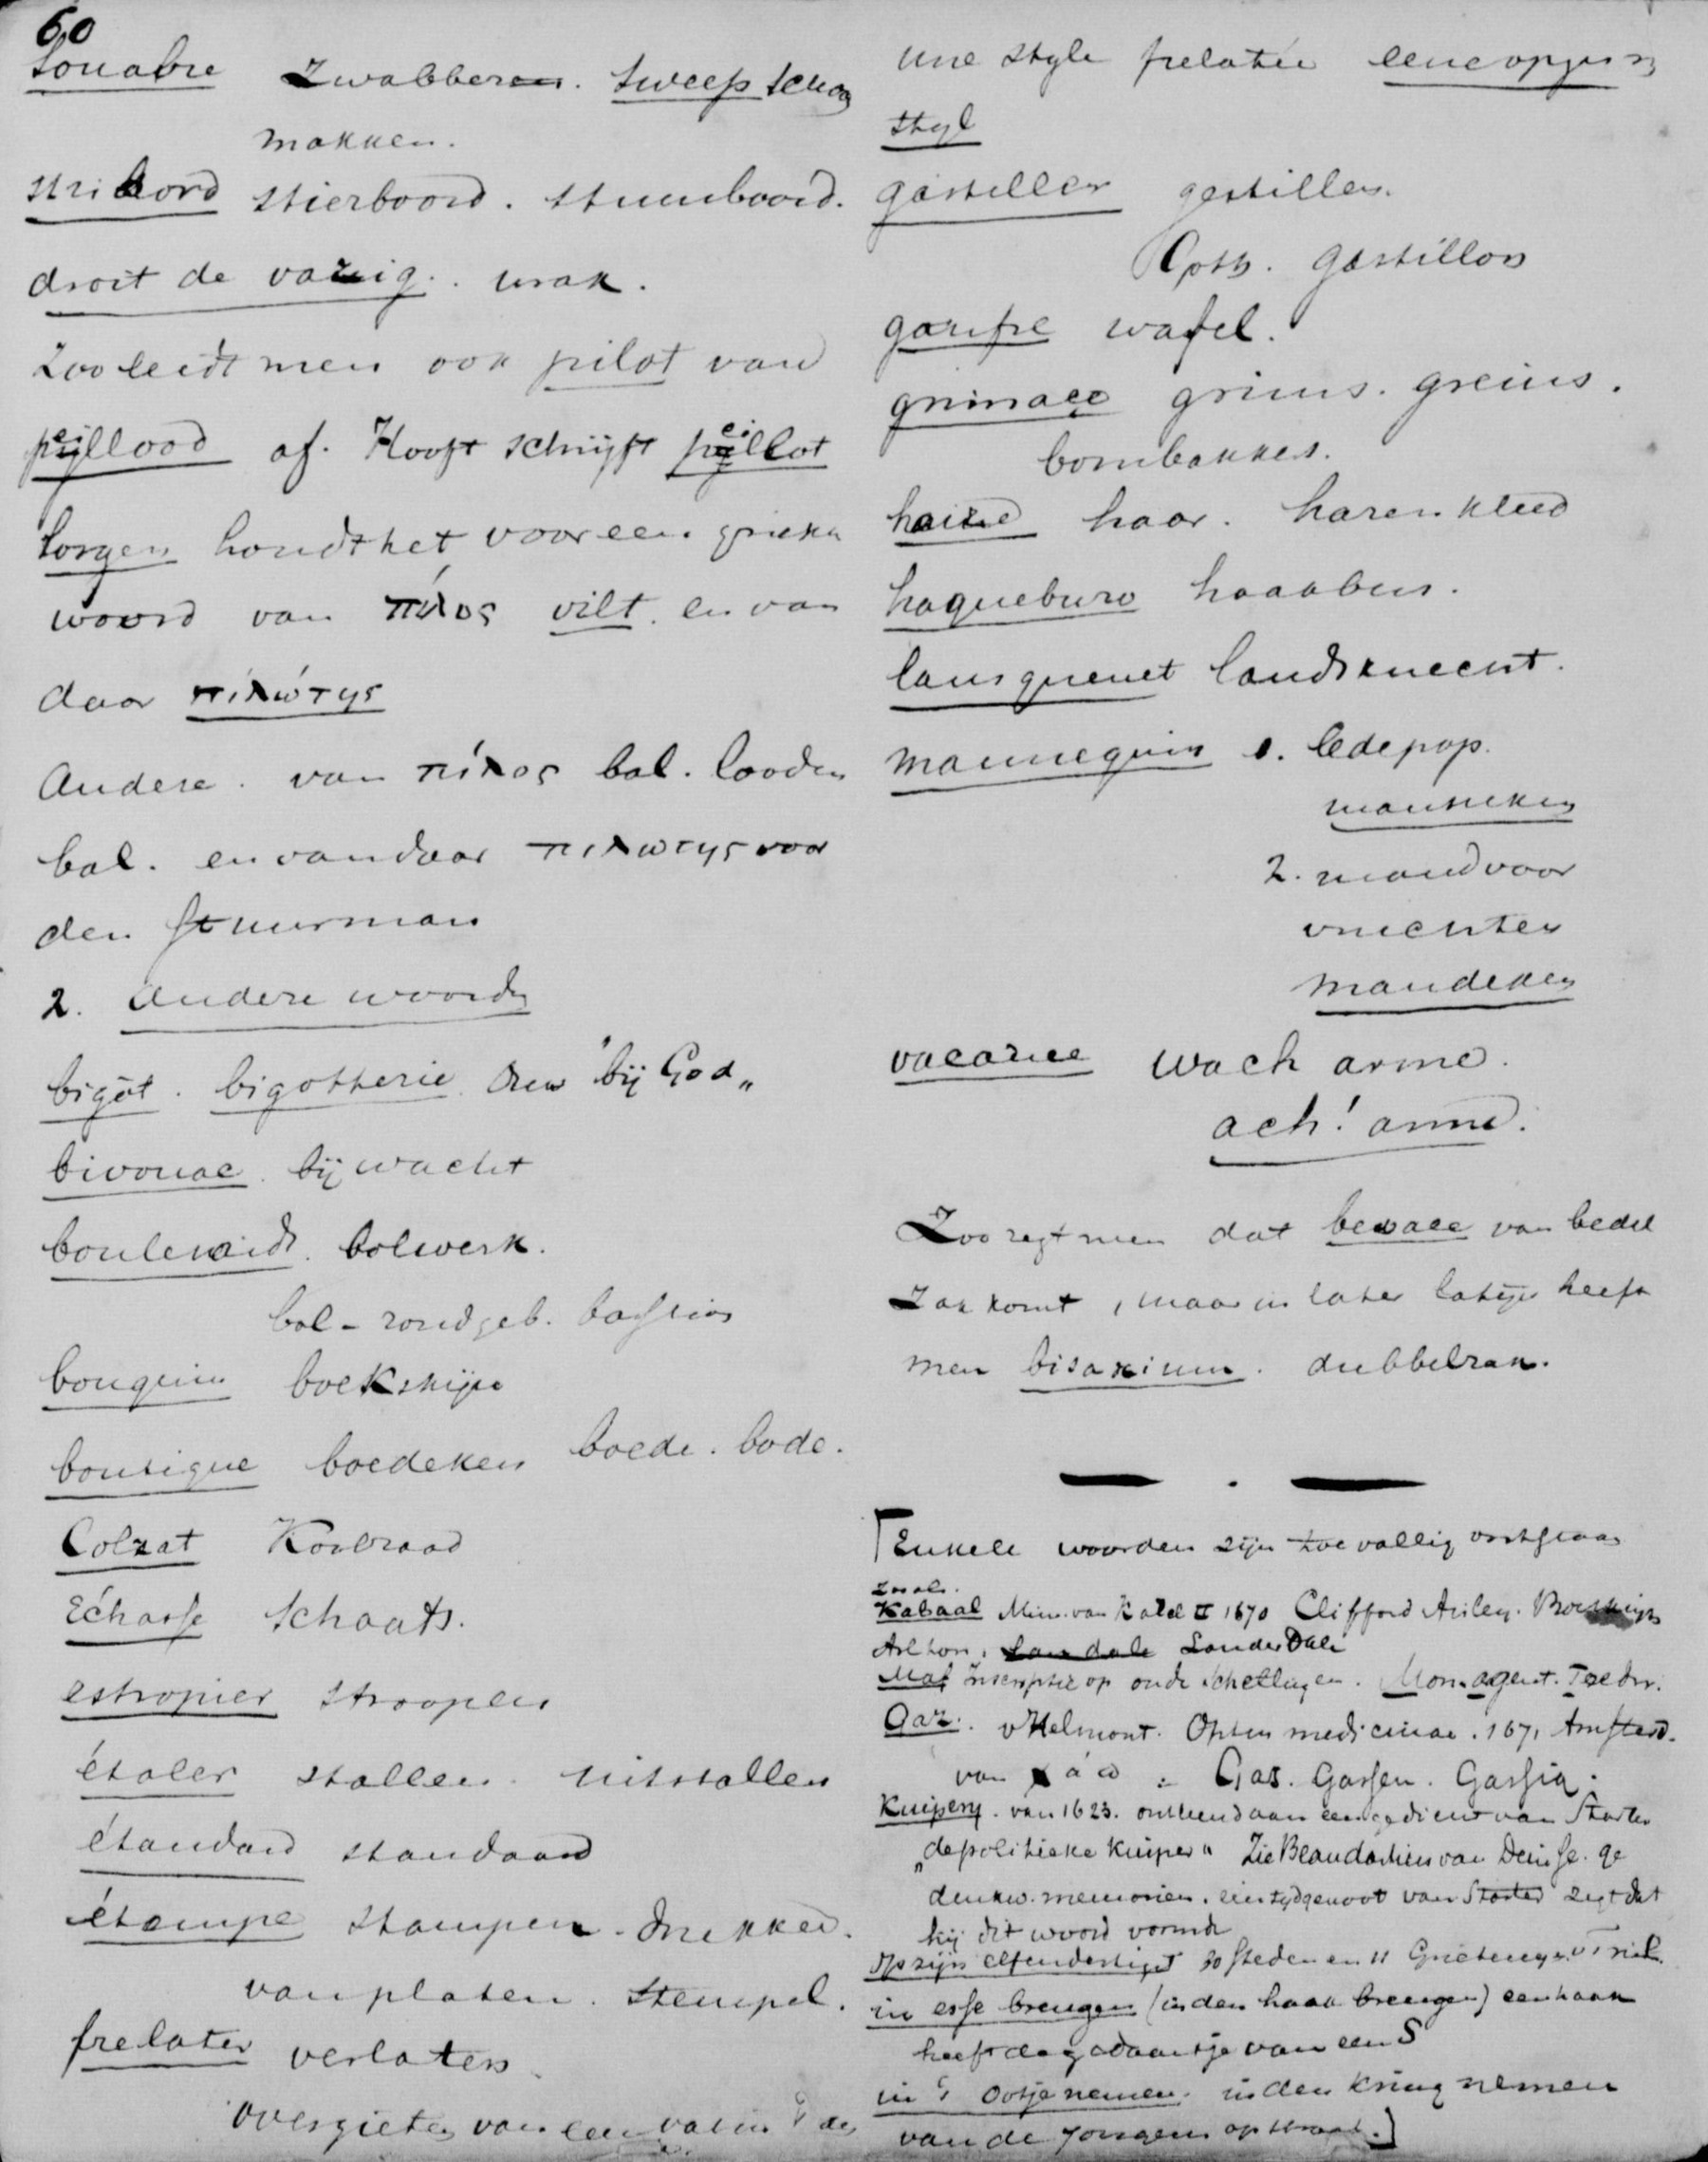 60
Souabre Zwabberen. Sweep schoon
makken.
stribord stierboord. stuurboord.
droit de varig. wrak.
Zoo leidt men ook pilot van
peijllood af. Hooft schrijft peillot
Sorgen houdt het voor een grieksch
woord van πίλος vilt. en van
daar πιλώτης
Andere. van πίλος bal. looden
bal. en vandaar πιλωτης voor
den stuurman
2. Andere woorden
bigot. bigotterie. "bij God"
bivouac. bijwacht
boulevards. bolwerk.
bol - rond geb. bastion
bouquin boekskijn
boutique boedeken boede. bode.
Colzat Koolzaad
Echasse Schaats.
estropier stroopen
étaler stallen. uitstallen
étandard standaard
étampe stampen. drukken.
van platen. Stempel.
frelater verlaten.
overgieten van een vat in
une style frelatée eene opges
styl
gastiller gestillen.
Goth. gastillon
gaufre wafel.
grimace grims. greins.
bombakkes.
haire haar. haren kleed
haquebuse haakbus.
lansquenet landsknecht.
mannequin 1. ledepop.
manneken
2. mand voor
vruchten
mandeken
vacarme wach arme.
ach! arme.
Zoo zegt men dat besace van bedel
Zak komt, maar in later latijn heeft
men bisaxium. dubbelzak.
[Enkele woorden zijn toevallig ontstaan
zoals.
Kabaal Min. van Karel II 1670 Clifford Arley. Buckingh
Ashton. Lauderdale
Maf Inscriptie op oude schellingen. Mon. agent. Foedr.
Gaz. v Helmont. Ortus medicinae. 1671 Amsterd.
van χάω = Gas. Gassen. Gassia.
Kuipery. van 1623. ontleend aan een gedicht van Starter
"de politieke kuiper" Zie Beaudartius van Deinse. ge
denkw. memorien. een tydgenoot van Starter zegt dat
hij dit woord vormde
op zijn elfendertigst 30 steden en 11 Grietenyen v Friesl.
in esse brengen (in den haak brengen) een haak
heeft de gedaante van een S
in 't ootje nemen. in den kring nemen
van de jongens op straat.]